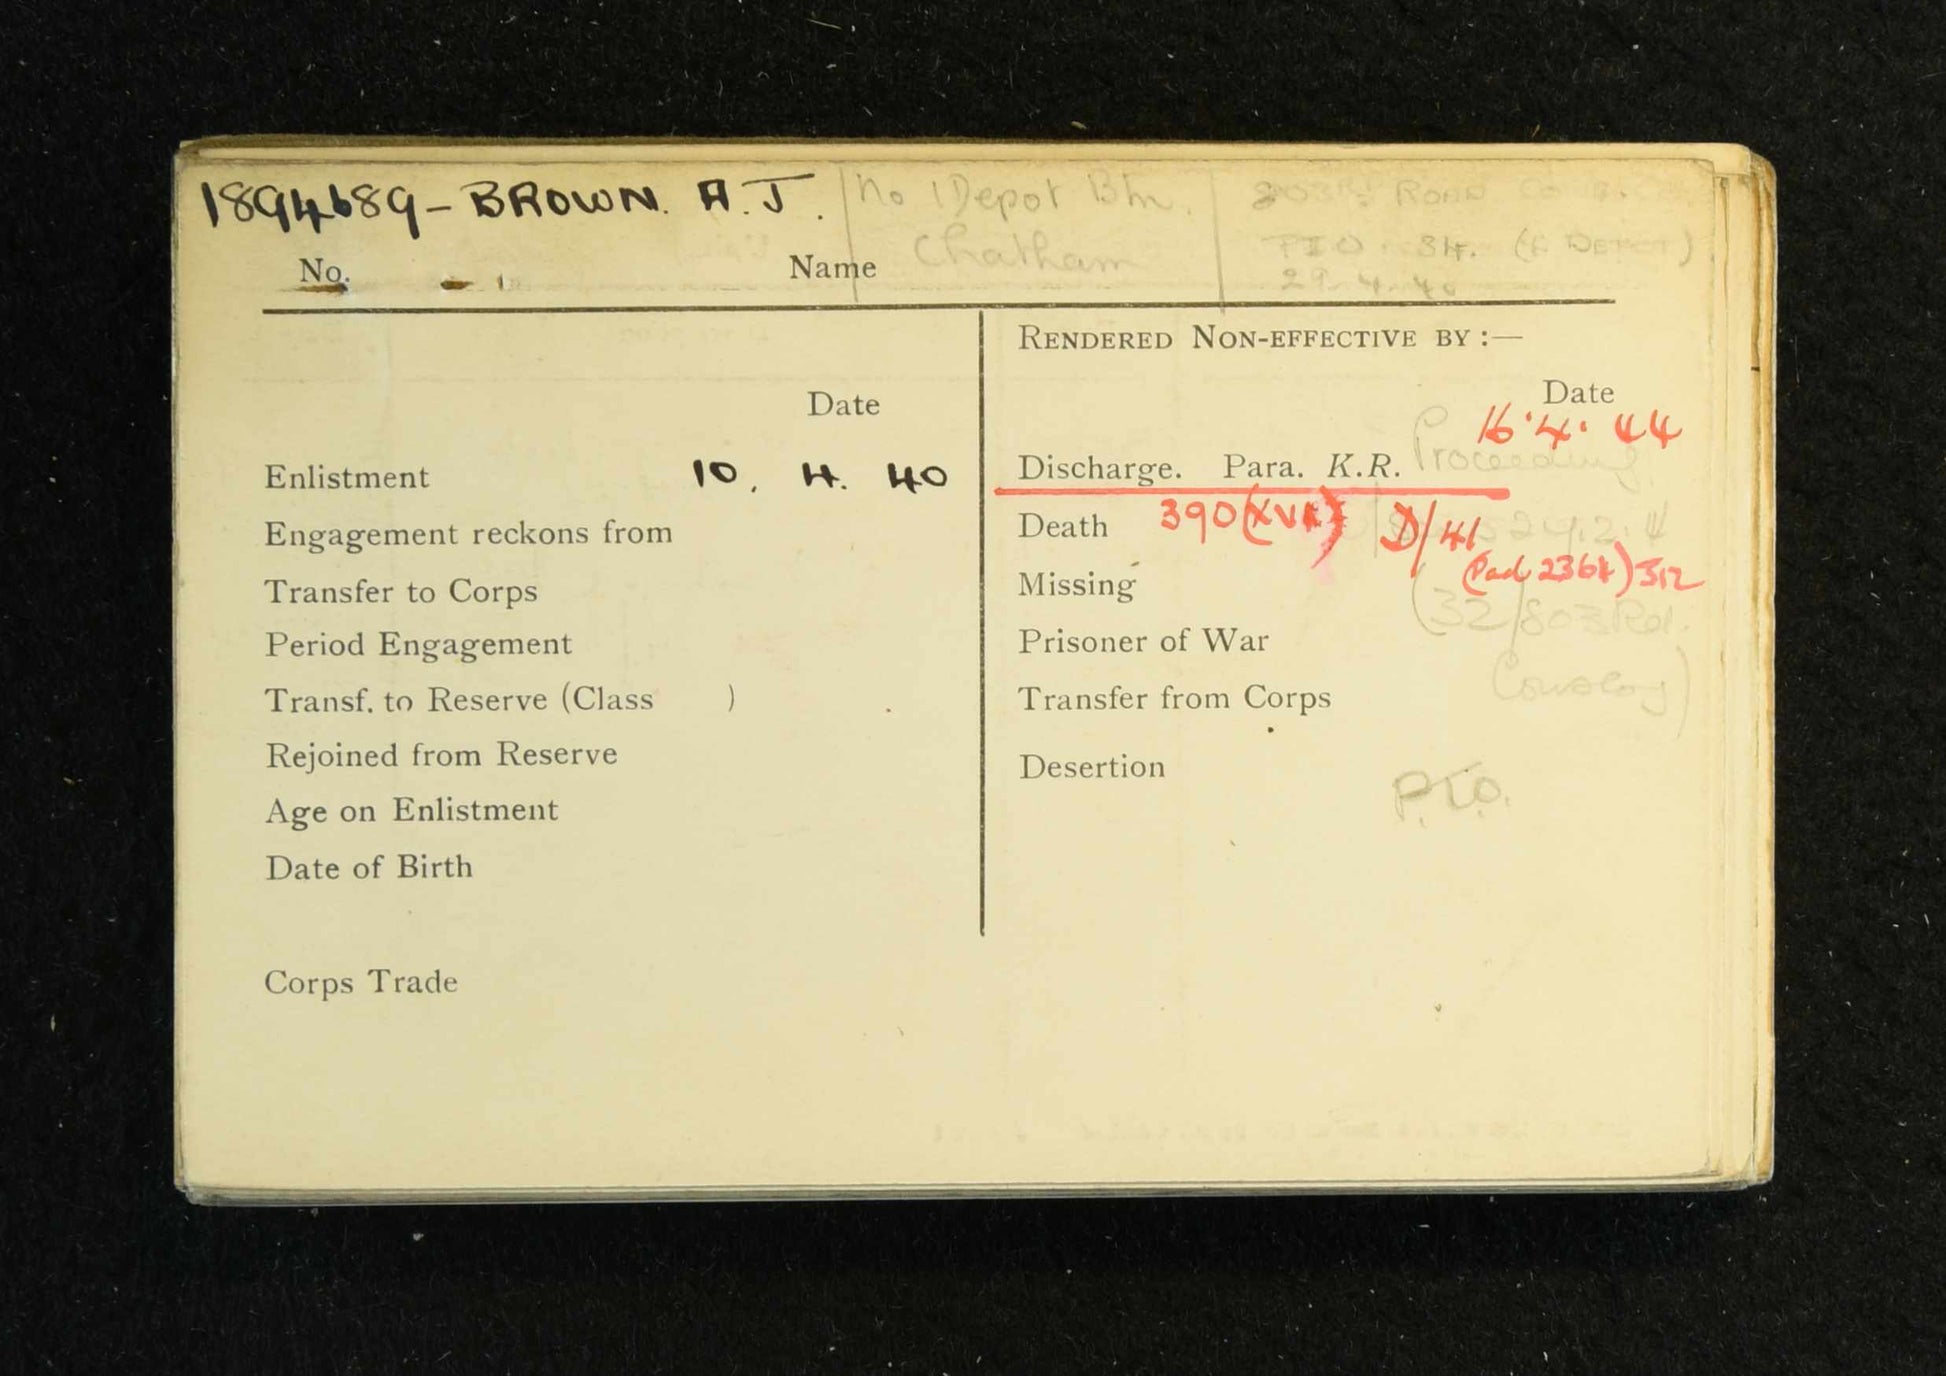 1894689 - BROWN. A.J. No 1 Depot Btn. ROAD CO
Chatham
29.4.40
No. Name
RENDERED NON-EFFECTIVE BY :—
Date
Date
16.4.44
Enlistment 10. 4. 40
Discharge. Para. K.R. Proceeding
Engagement reckons from
Death 390(XVI) D/41
(Pad 2364) 312
Transfer to Corps
Missing
(32/803 Rd.
Period Engagement
Prisoner of War
Transf. to Reserve (Class )
Transfer from Corps
Rejoined from Reserve
Desertion
P.T.O.
Age on Enlistment
Date of Birth
Corps Trade